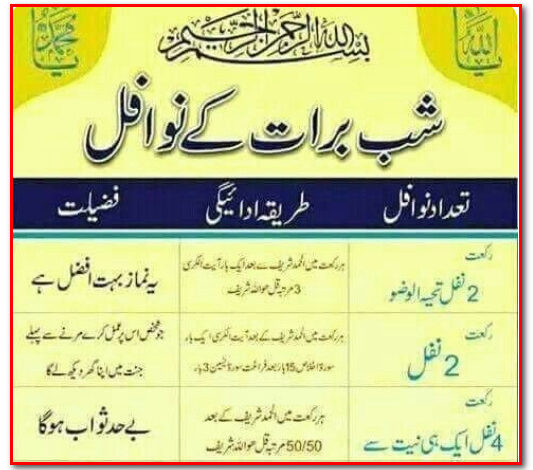 یا اللہ
یا محمد
بسم اللہ الرحمن الرحیم
شب برات کے نوافل
تعداد نوافل طریقہ ادائیگی فضیلت
رکعت
2 نفل تحیۃ الوضو
ہر رکعت میں الحمد شریف کے بعد ایک بار آیت الکرسی
3 مرتبہ قل ھو اللہ شریف
یہ نماز بہت افضل ہے
رکعت
2 نفل
ہر رکعت میں الحمد شریف کے بعد آیت الکرسی ایک بار
سورۃ اخلاص 15 بار بعد فراغت سورۃ یٰسین 3 بار
جو شخص اس پر عمل کرے مرنے سے پہلے
جنت میں اپنا گھر دیکھ لے گا
رکعت
4 نفل ایک ہی نیت سے
ہر رکعت میں الحمد شریف کے بعد
50/50 مرتبہ قل ھو اللہ شریف
بے حد ثواب ہوگا